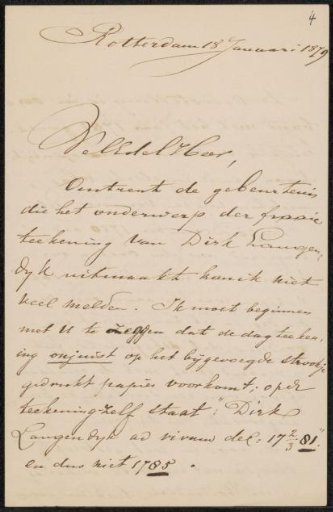 4
Rotterdam 18 Januari 1879
WelEdel Heer,
Omtrent de gebeurtenis
die het onderwerp der fraaie
teekening van Dirk Langen-
dyk uitmaakt kan ik niet
veel melden. Ik moet beginnen
met U te zeggen dat de dagteeken-
ing onjuist op het bijgevoegde strookje
gedrukt papier voorkomt; op de
teekening zelf staat: "Dirk
Langendyk ad vivum del: 17 2/3 81"
en dus niet 1785.